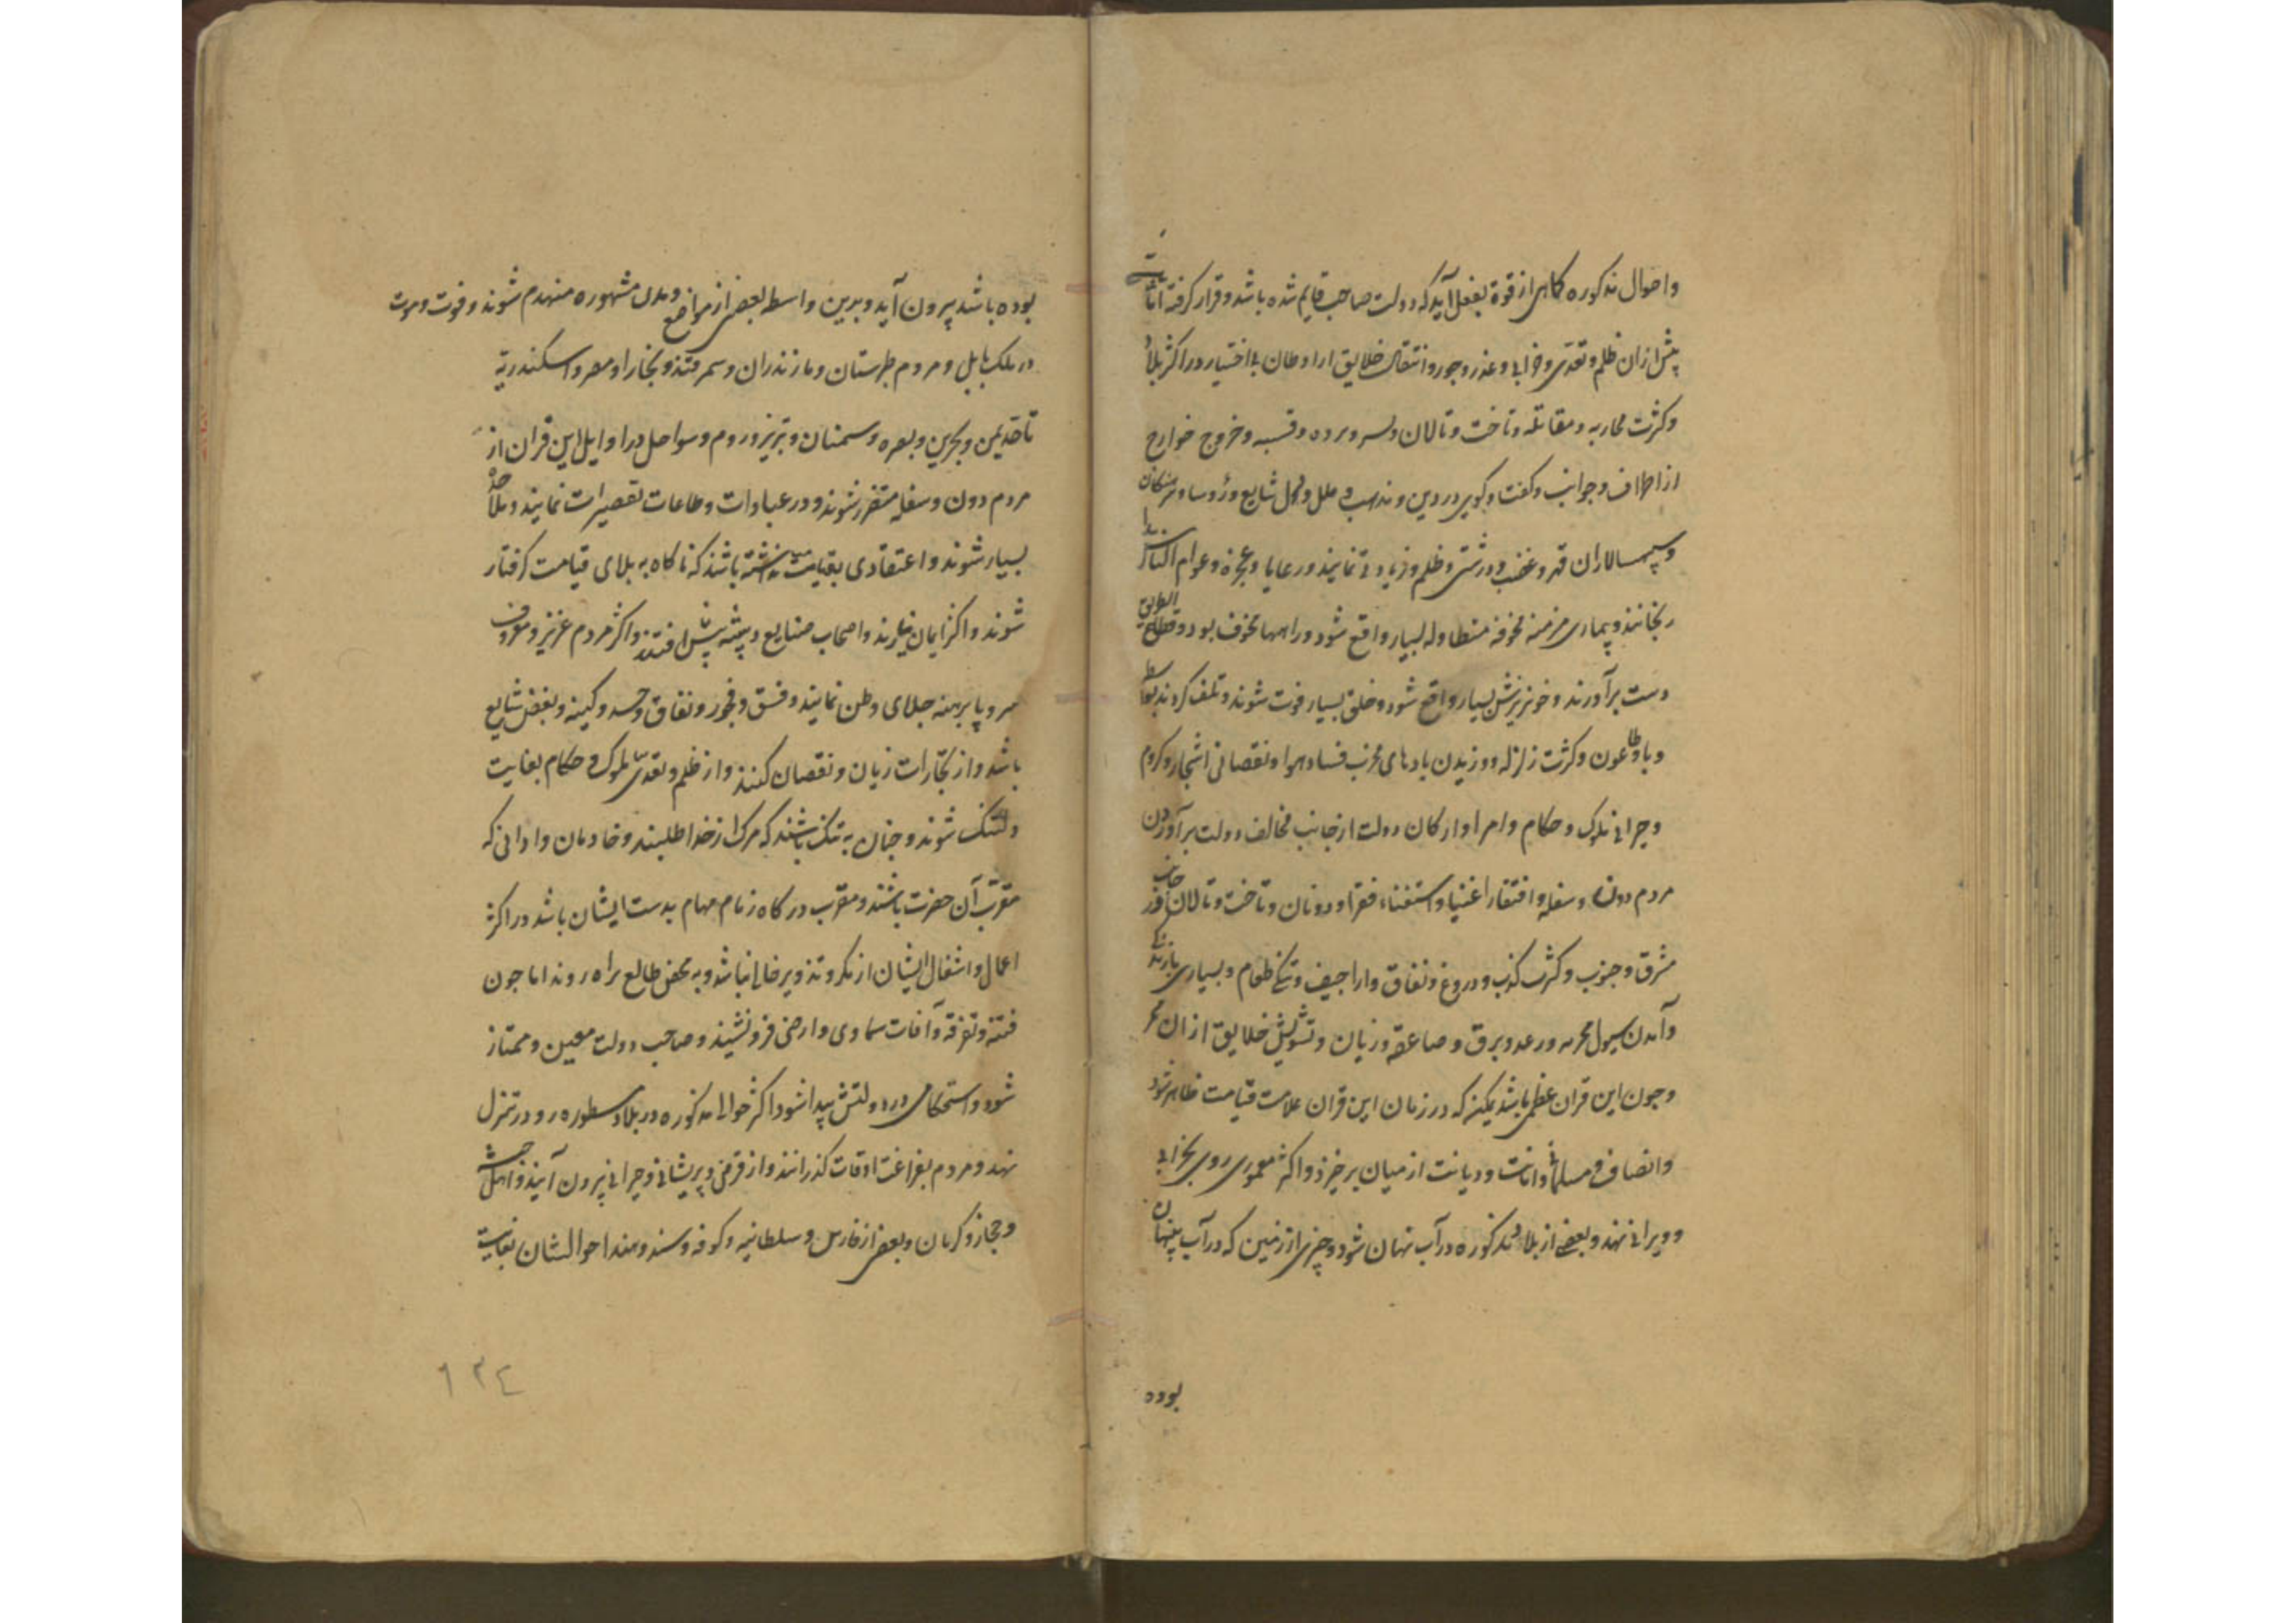 واحوال مذکوره کاهی از قوة بفعل آید که دولت صاحب قایم شده باشد و قرار کرفته اثبات
پیش ازان ظلم و تعدی و خرابی و غدر و جور و انتقال خلایق از اوطان بی اختیار در اکثر بلاد
وکثرت محاربه و مقاتله و تاخت و تالان و اسر و برده و فتنه و خروج خوارج
از اطراف و جوانب و کفت و کوی در دین و مذهب و ملل و نحل شایع و رؤسا و سرهنکان
وسپهسالاران قهر و غضب و درشتی و ظلم و زیادتی نمایند و رعایا و عجزه و عوام الناس را
رنجانند و بیماری مزمنه مخوفه متطاوله بسیار واقع شود و راهها مخوف بود و قطاع الطریق
دست برآورند و خونریزش بسیار واقع شود و خلق بسیار فوت شوند و تلف کردند بواسطه
وبا و طاعون و کثرت زلزله و وزیدن بادهای مخرب فساد هوا و نقصانی اشجار و کروم
و حیرانی ملوک و حکام و امرا و ارکان دولت از جانب مخالف دولت برآوردن
مردم دون و سفله و افتقار اغنیا و استغناء فقرا و دونان و تاخت و تالان از جانب
مشرق و جنوب و کثرت کذب و دروغ و نفاق و اراجیف و تنکی طعام و بسیاری بارندکی
و آمدن سیول مخربه و رعد و برق و صاعقه و زیان و تشویش خلایق از ان ممر
و جون این قران عظمی باشد یمکن که در زمان این قران علامت قیامت ظاهر شود
و انصاف و مسلمانی و امانت و دیانت از میان برخیزد و اکثر معموری روی بخرابی
و ویرانی نهد و بعضی از بلاد مذکوره در آب نهان شود و چیزی از زمین که در آب پنهان
بوده
بوده باشد بیرون آید و بدین واسطه بعضی از مواضع و مدن مشهوره منهدم شوند و فوت و موت
در ملک بابل و مردم طبرستان و مازندران و سمرقند و بخارا و مصر و اسکندریة
تا حد یمن و بحرین و بصره و سمنان و تبریز و روم و سواحل در اوایل این قران از
مردم دون و سفله متضرر شوند و در عبادات و طاعات تقصیرات نمایند و ملاحده
بسیار شوند و اعتقادی بقیامت نداشته باشند که ناکاه به بلای قیامت کرفتار
شوند و اکثر ایمان نیارند و اصحاب صنایع و پیشه پیش افتند و اکثر مردم عزیز و معروف
سر و پا برهنه جلای وطن نمایند و فسق و فجور و نفاق و حسد و کینه و بغض شایع
باشد و از تجارات زیان و نقصان کنند و از ظلم و تعدی ملوک و حکام بغایت
دلتنک شوند و جنان به تنک باشند که مرک از خدا طلبند و خادمان و ادانی که
مقرب آن حضرت باشند و مقرب درکاه زمام مهام بدست ایشان باشد در اکثر
اعمال و اشغال ایشان از مکر و تزویر خالی نباشد و به محض طالع براه روند اما جون
فتنه و تفرقه و آفات سماوی و ارضی فرو نشیند و صاحب دولت معین و ممتاز
شود و استحکامی در دولتش پیدا شود اکثر احوال مذکوره در بلاد مسطوره رو در تنزل
نهد و مردم بفراغت اوقات کذرانند و از قرض و پریشانی و حیرانی بیرون آیند و اهل حبشه
و حجاز و کرمان و بعضی از فارس و سلطانیه و کوفه و سند و هند احوالشان بغایت
۱۳٤